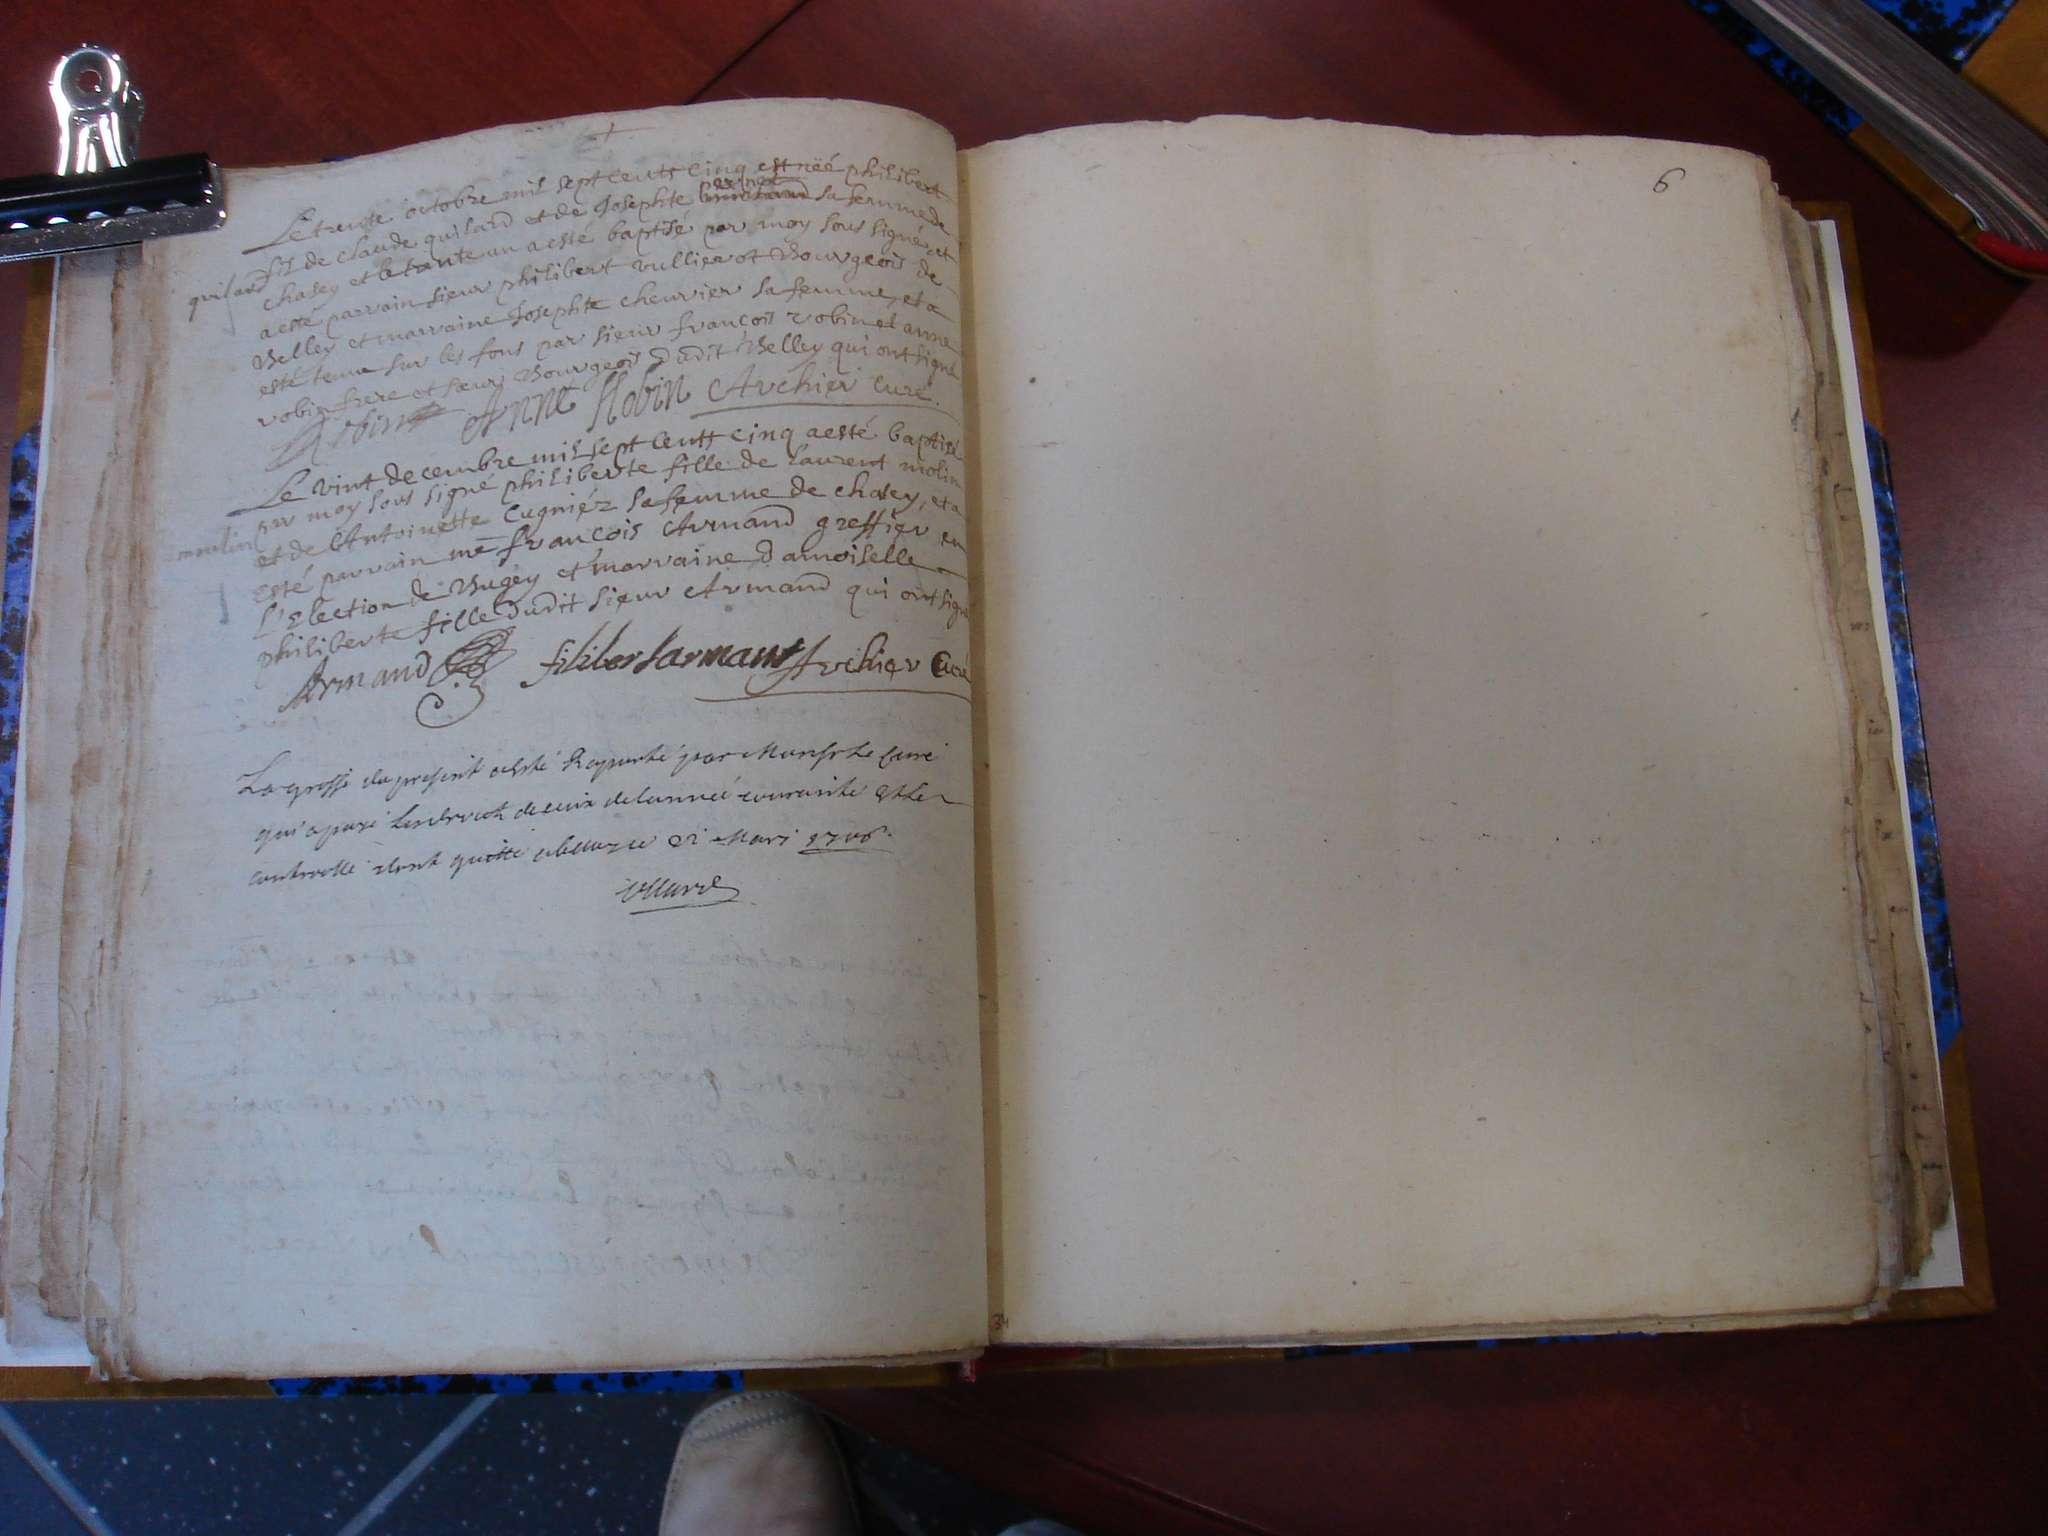 Le trente octobre mil sept cents cinq est néé philibert
fils de claude quilard et de Josephte sa femme de
quilard
chasey et le trante un a esté baptisé par moy sous signé, et
a esté parrain sieur philibert vullierot Bourgeois de
Belley et marraine Josephte cheurier sa femme, et a
esté tenu sur les fons par sieur françois robin et anne
robin frere et sœur Bourgeois dudit Belley qui ont signé
Robin Anne Robin Archier curé.
Le vint decembre mil sept cents cinq a esté baptisé
par moy sous signé philiberte fille de laurent molin
moulin
et de Antoinette Cugniéz sa femme de chasey, et a
esté parrain me françois Armand greffier en
l'Election de Bugey et marraine damoiselle
philiberte fille dudit sieur Armand qui ont signé
Armand filibertarmant Archier Curé
La grosse du present a esté Raporté par Monsr le Curé
qui a payé de lannée courante et le
controlle dont quitte a ce 21 Mars 1706.
6
34